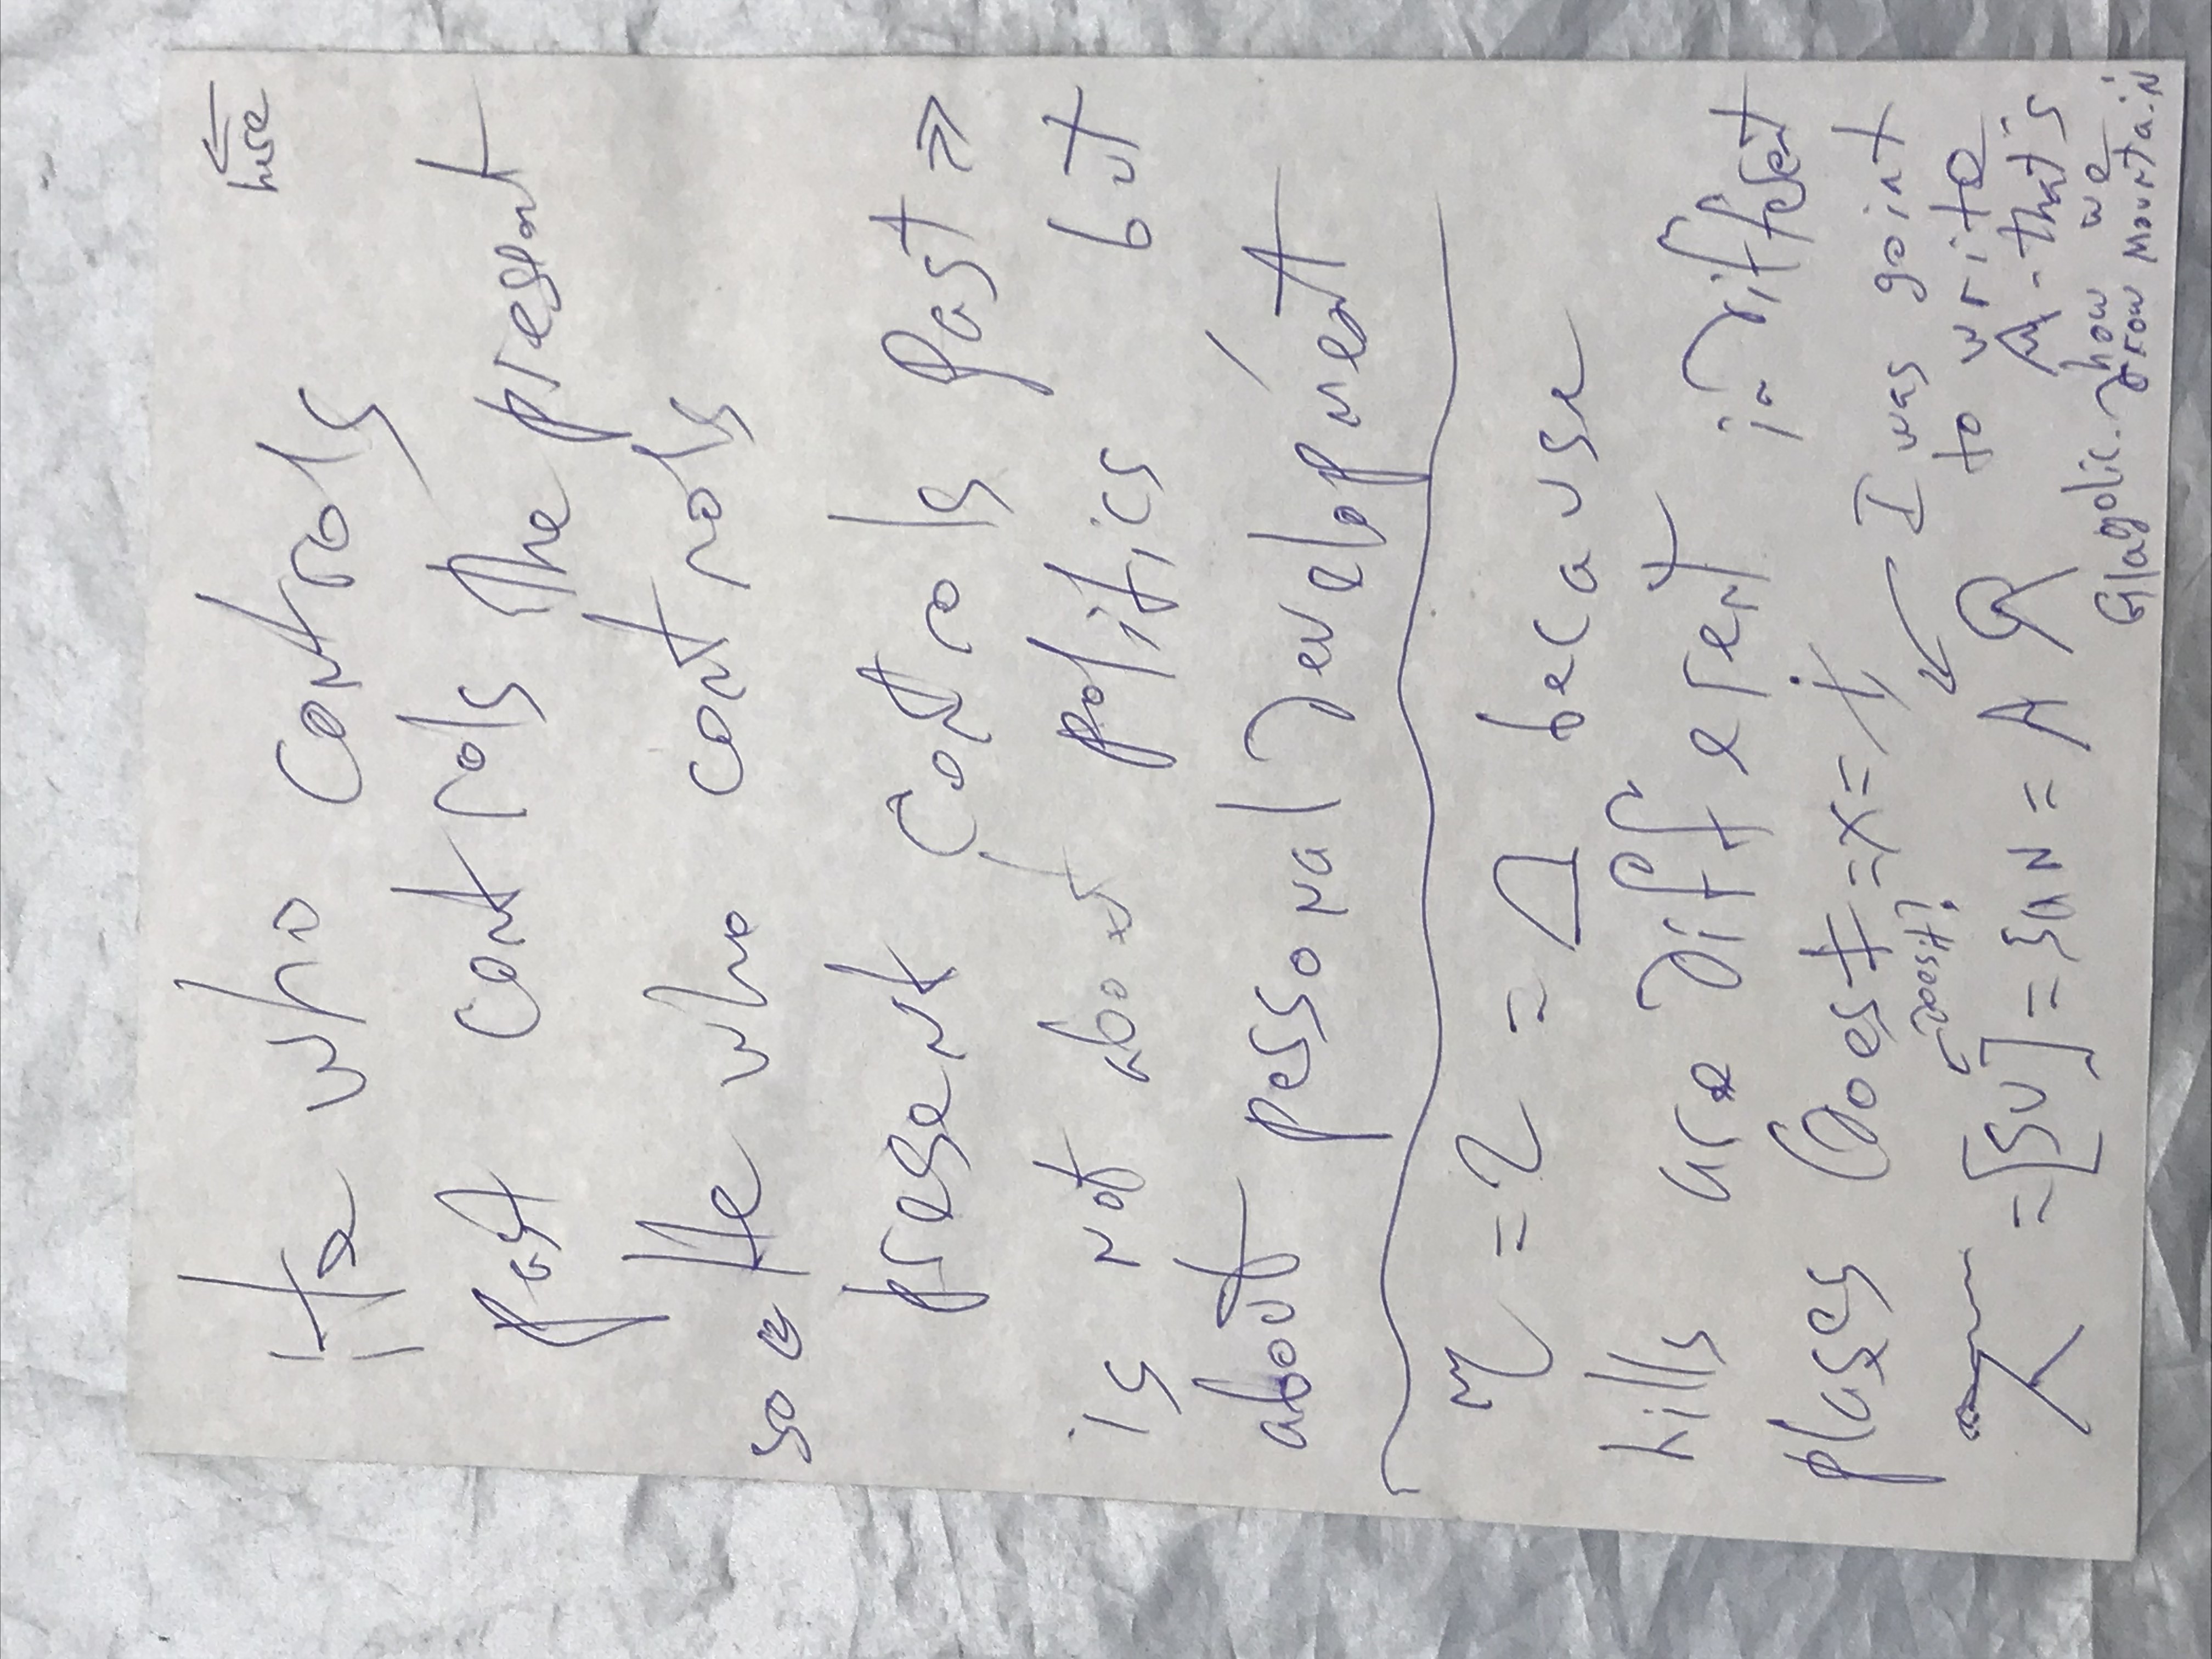 ← here
He who controls
past controls the present
so He who controls
present controls past »
is not about politics but
about personal development
η = 2 = Δ because
hills are different in different
plases (Does ‡ = x = i
doesit?
I was goint
to write
= [SU] = SaN = A
A - that's
how we
Glagolic. drow mountain